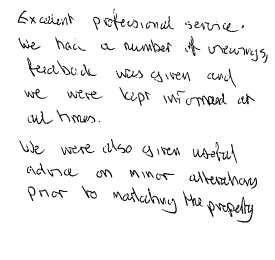 Excellent professional service.
We had a number of viewings,
feedback was given and
we were kept informed at
all times.
We were also given useful
advice on minor alterations
prior to marketing the property